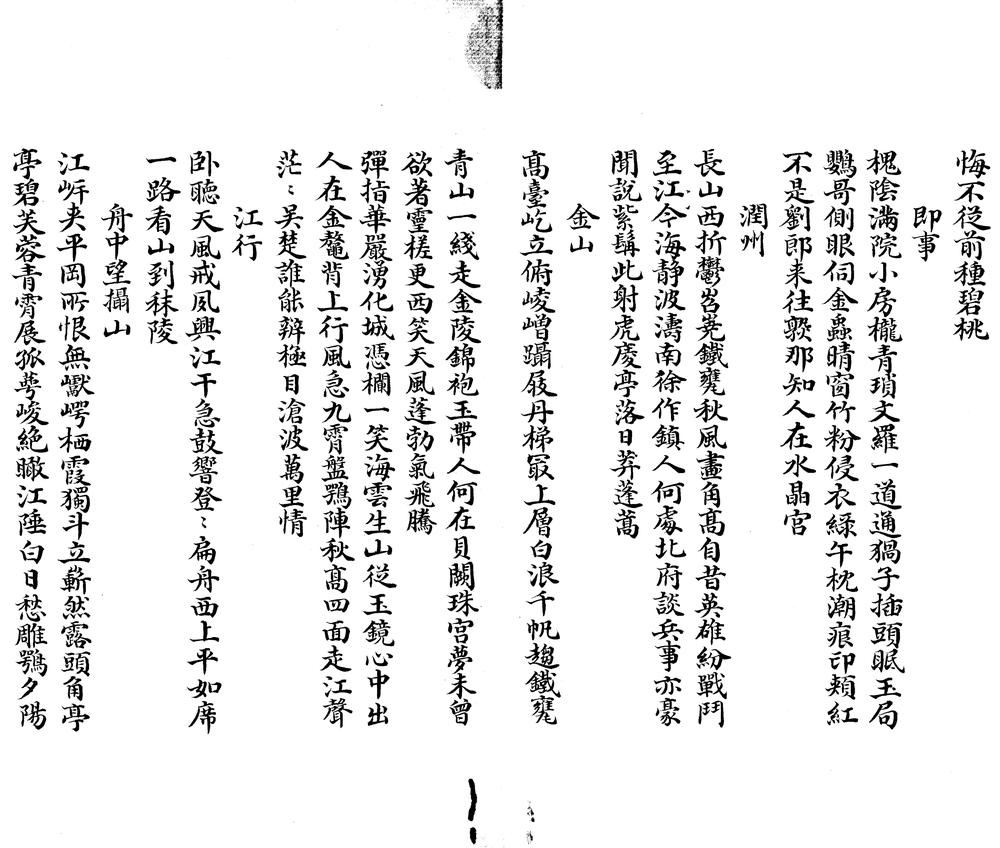 悔不從前種碧桃
即事
槐陰滿院小房櫳青瑣文羅一道通猧子插頭眠玉局
鸚哥側眼伺金蟲晴窗竹粉侵衣綠午枕潮痕印頰紅
不是劉郎来往𣣔那知人在水晶宮
潤州
長山西折鬱岧嶤鐵甕秋風畫角髙自昔英雄紛戰鬥
至江今海靜波濤南徐作鎮人何處北府談兵事亦豪
聞說紫髯此射虎慶亭落日莽蓬蒿
金山
髙臺屹立俯崚嶒躡屐丹梯冣上層白浪千帆趨鐵甕
青山一綫走金陵錦袍玉帶人何在貝闕珠宮夢未曾
欲著靈槎更西笑天風蓬勃氣飛騰
彈指華嚴湧化城憑欄一笑海雲生山從玉鏡心中出
人在金鼇背上行風急九霄盤鶚陣秋髙四面走江聲
茫〻吳楚誰能辨極目滄波萬里情
江行
卧聽天風戒夙興江干急鼓響登〻扁舟西上平如席
一路看山到秣陵
舟中望攝山
江㟁夾平岡所恨無巘崿栖霞獨斗立嶄然露頭角亭
亭碧芙蓉青霄展孤萼峻絶瞰江陲白日愁雕鶚夕陽